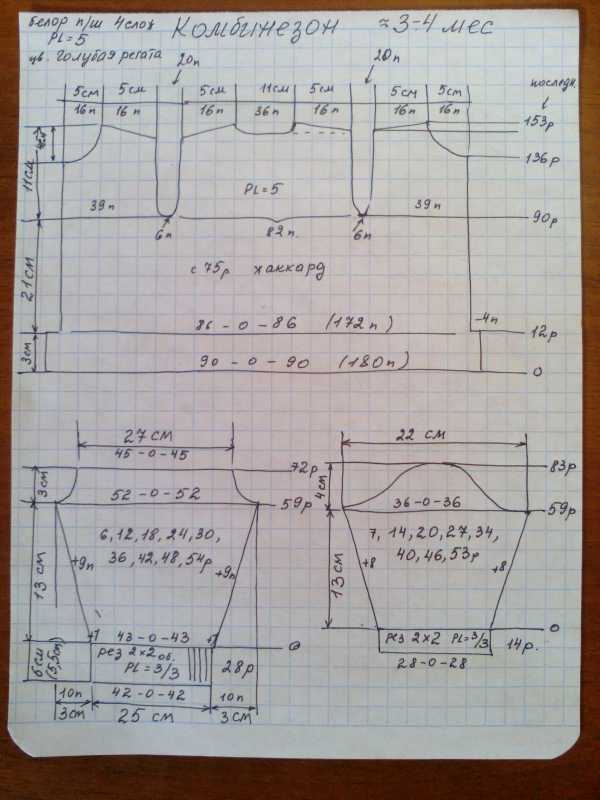 белор п/ш 4 слож
PL=5
Комбинезон ≈3-4 мес
цв. Голубая регата
20п 20п
5см 5см 5см 11см 5см 5см 5см
16п 16п 16п 36п 16п 16п 16п
последн.
153р
136р
11см
PL=5
39п 39п
90р
6п 82п 6п
с 75р жаккард
21см
-4п
86-0-86 (172п)
12р
3см
90-0-90 (180п)
0
27 см
45-0-45
72р
3см
52-0-52
59р
6,12,18,24,30,
36,42,48,54р
+9п +9п
13 см
+1 43-0-43 +1
0
рез 2×2 об.
PL=3/3
28р
6см
(5,5см)
10п 42-0-42 10п
3см 25 см 3см
22 см
83р
4см
36-0-36
59р
7, 14, 20, 27, 34,
40, 46, 53р
+8 +8
13см
0
рез 2×2 PL=3/3
14р.
28-0-28